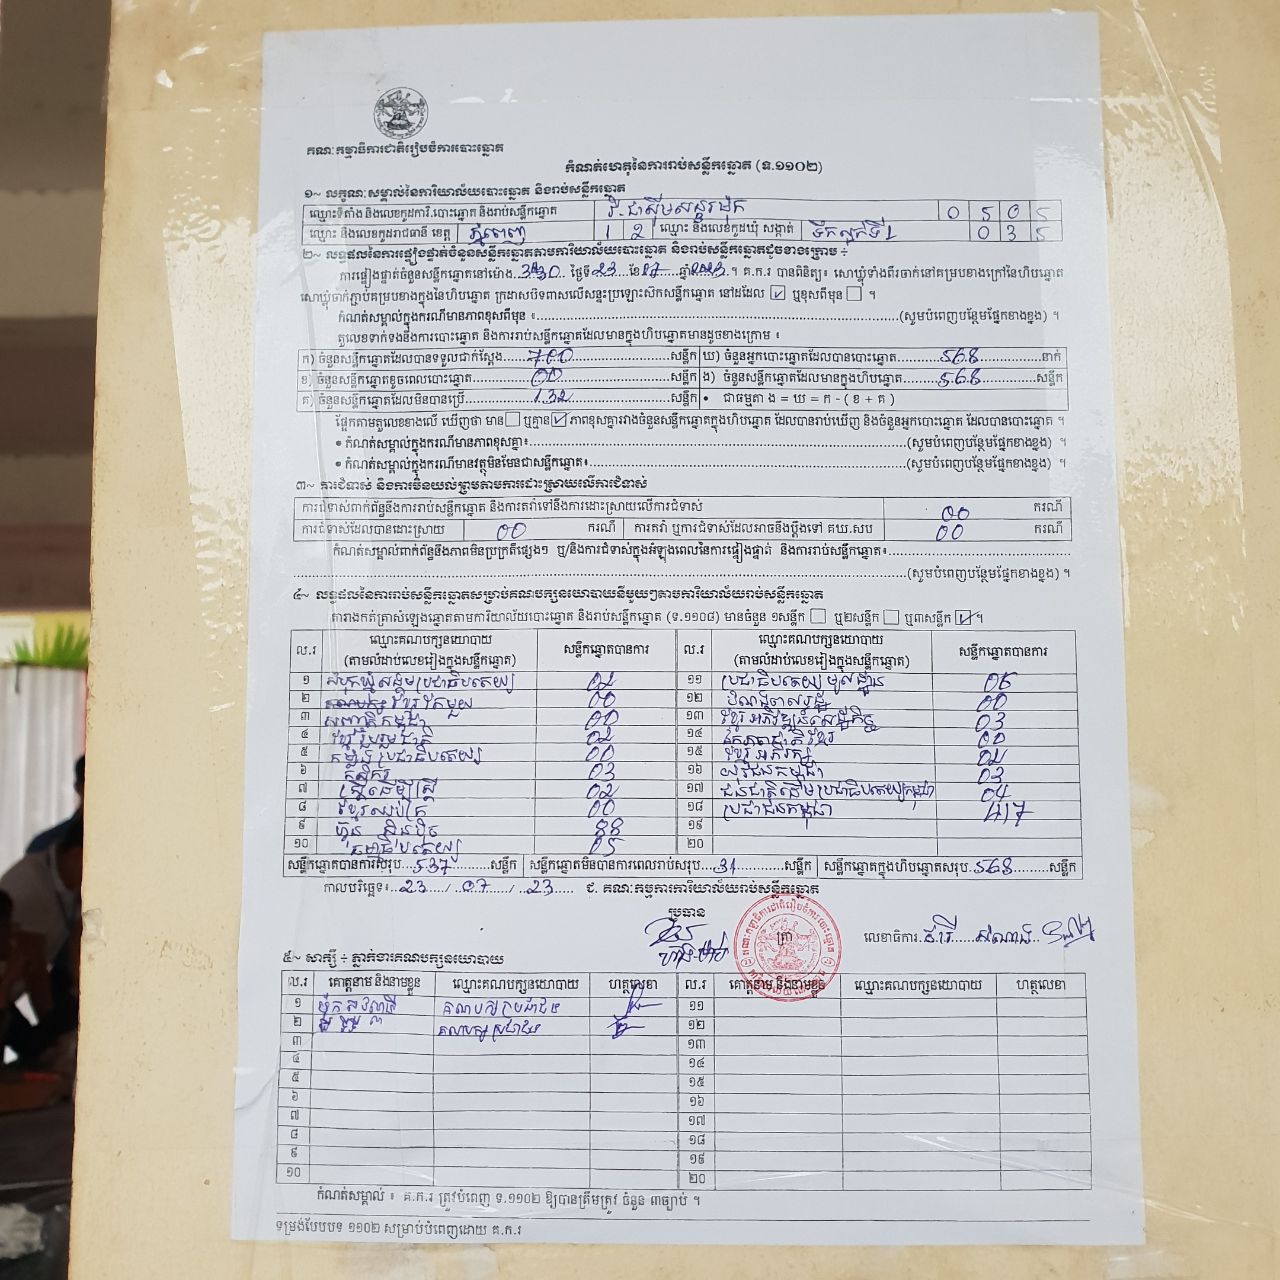 គណៈកម្មាធិការជាតិរៀបចំការបោះឆ្នោត
កំណត់ហេតុនៃការរាប់សន្លឹកឆ្នោត (ទ.១១០២)
១~ លក្ខណៈសម្គាល់នៃការិយាល័យបោះឆ្នោត និងរាប់សន្លឹកឆ្នោត
ឈ្មោះទីតាំង និងលេខកូដការិ.បោះឆ្នោត និងរាប់សន្លឹកឆ្នោត វិ.ជាស៊ីមសន្ធរម៉ុក 0 5 0 5
ឈ្មោះ និងលេខកូដរាជធានី ខេត្ត ភ្នំពេញ 1 2 ឈ្មោះ និងលេខកូដឃុំ សង្កាត់ ទឹកល្អក់ទី1 0 3 5
២~ លទ្ធផលនៃការផ្ទៀងផ្ទាត់ចំនួនសន្លឹកឆ្នោតតាមការិយាល័យបោះឆ្នោត និងរាប់សន្លឹកឆ្នោតដូចខាងក្រោម ÷
ការផ្ទៀងផ្ទាត់ចំនួនសន្លឹកឆ្នោតនៅម៉ោង 3:30 ថ្ងៃទី 23 ខែ 07 ឆ្នាំ 2023 ។ គ.ក.រ បានពិនិត្យ៖ សោឃ្លុំទាំងពីរចាក់នៅគម្របខាងក្រៅនៃហិបឆ្នោត
សោឃ្លុំចាក់ភ្ជាប់គម្របខាងក្នុងនៃហិបឆ្នោត ក្រដាសបិទពាសលើសន្ទះប្រឡោះស៊កសន្លឹកឆ្នោត នៅដដែល ☑ ឬខុសពីមុន ☐ ។
កំណត់សម្គាល់ក្នុងករណីមានភាពខុសពីមុន ៖ (សូមបំពេញបន្ថែមផ្នែកខាងខ្នង) ។
តួលេខទាក់ទងនឹងការបោះឆ្នោត និងការរាប់សន្លឹកឆ្នោតដែលមានក្នុងហិបឆ្នោតមានដូចខាងក្រោម ៖
ក) ចំនួនសន្លឹកឆ្នោតដែលបានទទួលជាក់ស្តែង 700 សន្លឹក ឃ) ចំនួនអ្នកបោះឆ្នោតដែលបានបោះឆ្នោត 568 នាក់
ខ) ចំនួនសន្លឹកឆ្នោតខូចពេលបោះឆ្នោត 00 សន្លឹក ង) ចំនួនសន្លឹកឆ្នោតដែលមានក្នុងហិបឆ្នោត 568 សន្លឹក
គ) ចំនួនសន្លឹកឆ្នោតដែលមិនបានប្រើ 132 សន្លឹក • ជាធម្មតា ង = ឃ = ក - ( ខ + គ )
ផ្អែកតាមតួលេខខាងលើ ឃើញថា មាន ☐ ឬគ្មាន ☑ ភាពខុសគ្នារវាងចំនួនសន្លឹកឆ្នោតក្នុងហិបឆ្នោត ដែលបានរាប់ឃើញ និងចំនួនអ្នកបោះឆ្នោត ដែលបានបោះឆ្នោត ។
• កំណត់សម្គាល់ក្នុងករណីមានភាពខុសគ្នា៖ (សូមបំពេញបន្ថែមផ្នែកខាងខ្នង) ។
• កំណត់សម្គាល់ក្នុងករណីមានវត្ថុមិនមែនជាសន្លឹកឆ្នោត៖ (សូមបំពេញបន្ថែមផ្នែកខាងខ្នង) ។
៣~ ការជំទាស់ និងការមិនយល់ព្រមតាមការដោះស្រាយលើការជំទាស់
ការជំទាស់ពាក់ព័ន្ធនឹងការរាប់សន្លឹកឆ្នោត និងការតវ៉ាទៅនឹងការដោះស្រាយលើការជំទាស់ 00 ករណី
ការជំទាស់ដែលបានដោះស្រាយ 00 ករណី ការតវ៉ា ឬការជំទាស់ដែលអាចនឹងប្តឹងទៅ គឃ.សប 00 ករណី
កំណត់សម្គាល់ពាក់ព័ន្ធនឹងភាពមិនប្រក្រតីផ្សេងៗ ឬ/និងការជំទាស់ក្នុងអំឡុងពេលនៃការផ្ទៀងផ្ទាត់ និងការរាប់សន្លឹកឆ្នោត៖
(សូមបំពេញបន្ថែមផ្នែកខាងខ្នង) ។
៤~ លទ្ធផលនៃការរាប់សន្លឹកឆ្នោតសម្រាប់គណបក្សនយោបាយនីមួយៗតាមការិយាល័យរាប់សន្លឹកឆ្នោត
តារាងកត់ត្រាសំឡេងឆ្នោតតាមការិយាល័យបោះឆ្នោត និងរាប់សន្លឹកឆ្នោត (ទ.១១០៨) មានចំនួន ១សន្លឹក ☐ ឬ២សន្លឹក ☐ ឬ៣សន្លឹក ☑ ។
ល.រ ឈ្មោះគណបក្សនយោបាយ (តាមលំដាប់លេខរៀងក្នុងសន្លឹកឆ្នោត) សន្លឹកឆ្នោតបានការ ល.រ ឈ្មោះគណបក្សនយោបាយ (តាមលំដាប់លេខរៀងក្នុងសន្លឹកឆ្នោត) សន្លឹកឆ្នោតបានការ
១ សំបុកឃ្មុំសង្គមប្រជាធិបតេយ្យ 02 ១១ ប្រជាធិបតេយ្យមូលដ្ឋាន 06
២ ខ្មែរតែមួយ 00 ១២ បំណងចាស់រដ្ឋ 00
៣ សញ្ជាតិកម្ពុជា 00 ១៣ ខ្មែរអភិវឌ្ឍន៍សេដ្ឋកិច្ច 03
៤ ខ្មែររួបរួមជាតិ 02 ១៤ ឯកភាពជាតិខ្មែរ 00
៥ កម្លាំងប្រជាធិបតេយ្យ 00 ១៥ ខ្មែរអភិរក្ស 02
៦ កសិករ 03 ១៦ យុវជនកម្ពុជា 03
៧ ស្ត្រីដើម្បីស្ត្រី 02 ១៧ ជនជាតិដើមប្រជាធិបតេយ្យកម្ពុជា 04
៨ ខ្មែរឈប់ក្រ 00 ១៨ ប្រជាជនកម្ពុជា 417
៩ ហ៊្វុនស៊ិនប៉ិច 88 ១៩
១០ ធម្មាធិបតេយ្យ 05 ២០
សន្លឹកឆ្នោតបានការសរុប 537 សន្លឹក សន្លឹកឆ្នោតមិនបានការពេលរាប់សរុប 31 សន្លឹក សន្លឹកឆ្នោតក្នុងហិបឆ្នោតសរុប 568 សន្លឹក
កាលបរិច្ឆេទ៖ 23 / 07 / 23 ជ. គណៈកម្មការការិយាល័យរាប់សន្លឹកឆ្នោត
ប្រធាន
ត្រា
លេខាធិការ
៥~ សាក្សី ÷ ភ្នាក់ងារគណបក្សនយោបាយ
ល.រ គោត្តនាម និងនាមខ្លួន ឈ្មោះគណបក្សនយោបាយ ហត្ថលេខា ល.រ គោត្តនាម និងនាមខ្លួន ឈ្មោះគណបក្សនយោបាយ ហត្ថលេខា
១ គណបក្សប្រជាជន ១១
២ គណបក្សប្រជាជន ១២
៣ ១៣
៤ ១៤
៥ ១៥
៦ ១៦
៧ ១៧
៨ ១៨
៩ ១៩
១០ ២០
កំណត់សម្គាល់ ៖ គ.ក.រ ត្រូវបំពេញ ទ.១១០២ ឱ្យបានត្រឹមត្រូវ ចំនួន ៣ច្បាប់ ។
ទម្រង់បែបបទ ១១០២ សម្រាប់បំពេញដោយ គ.ក.រ